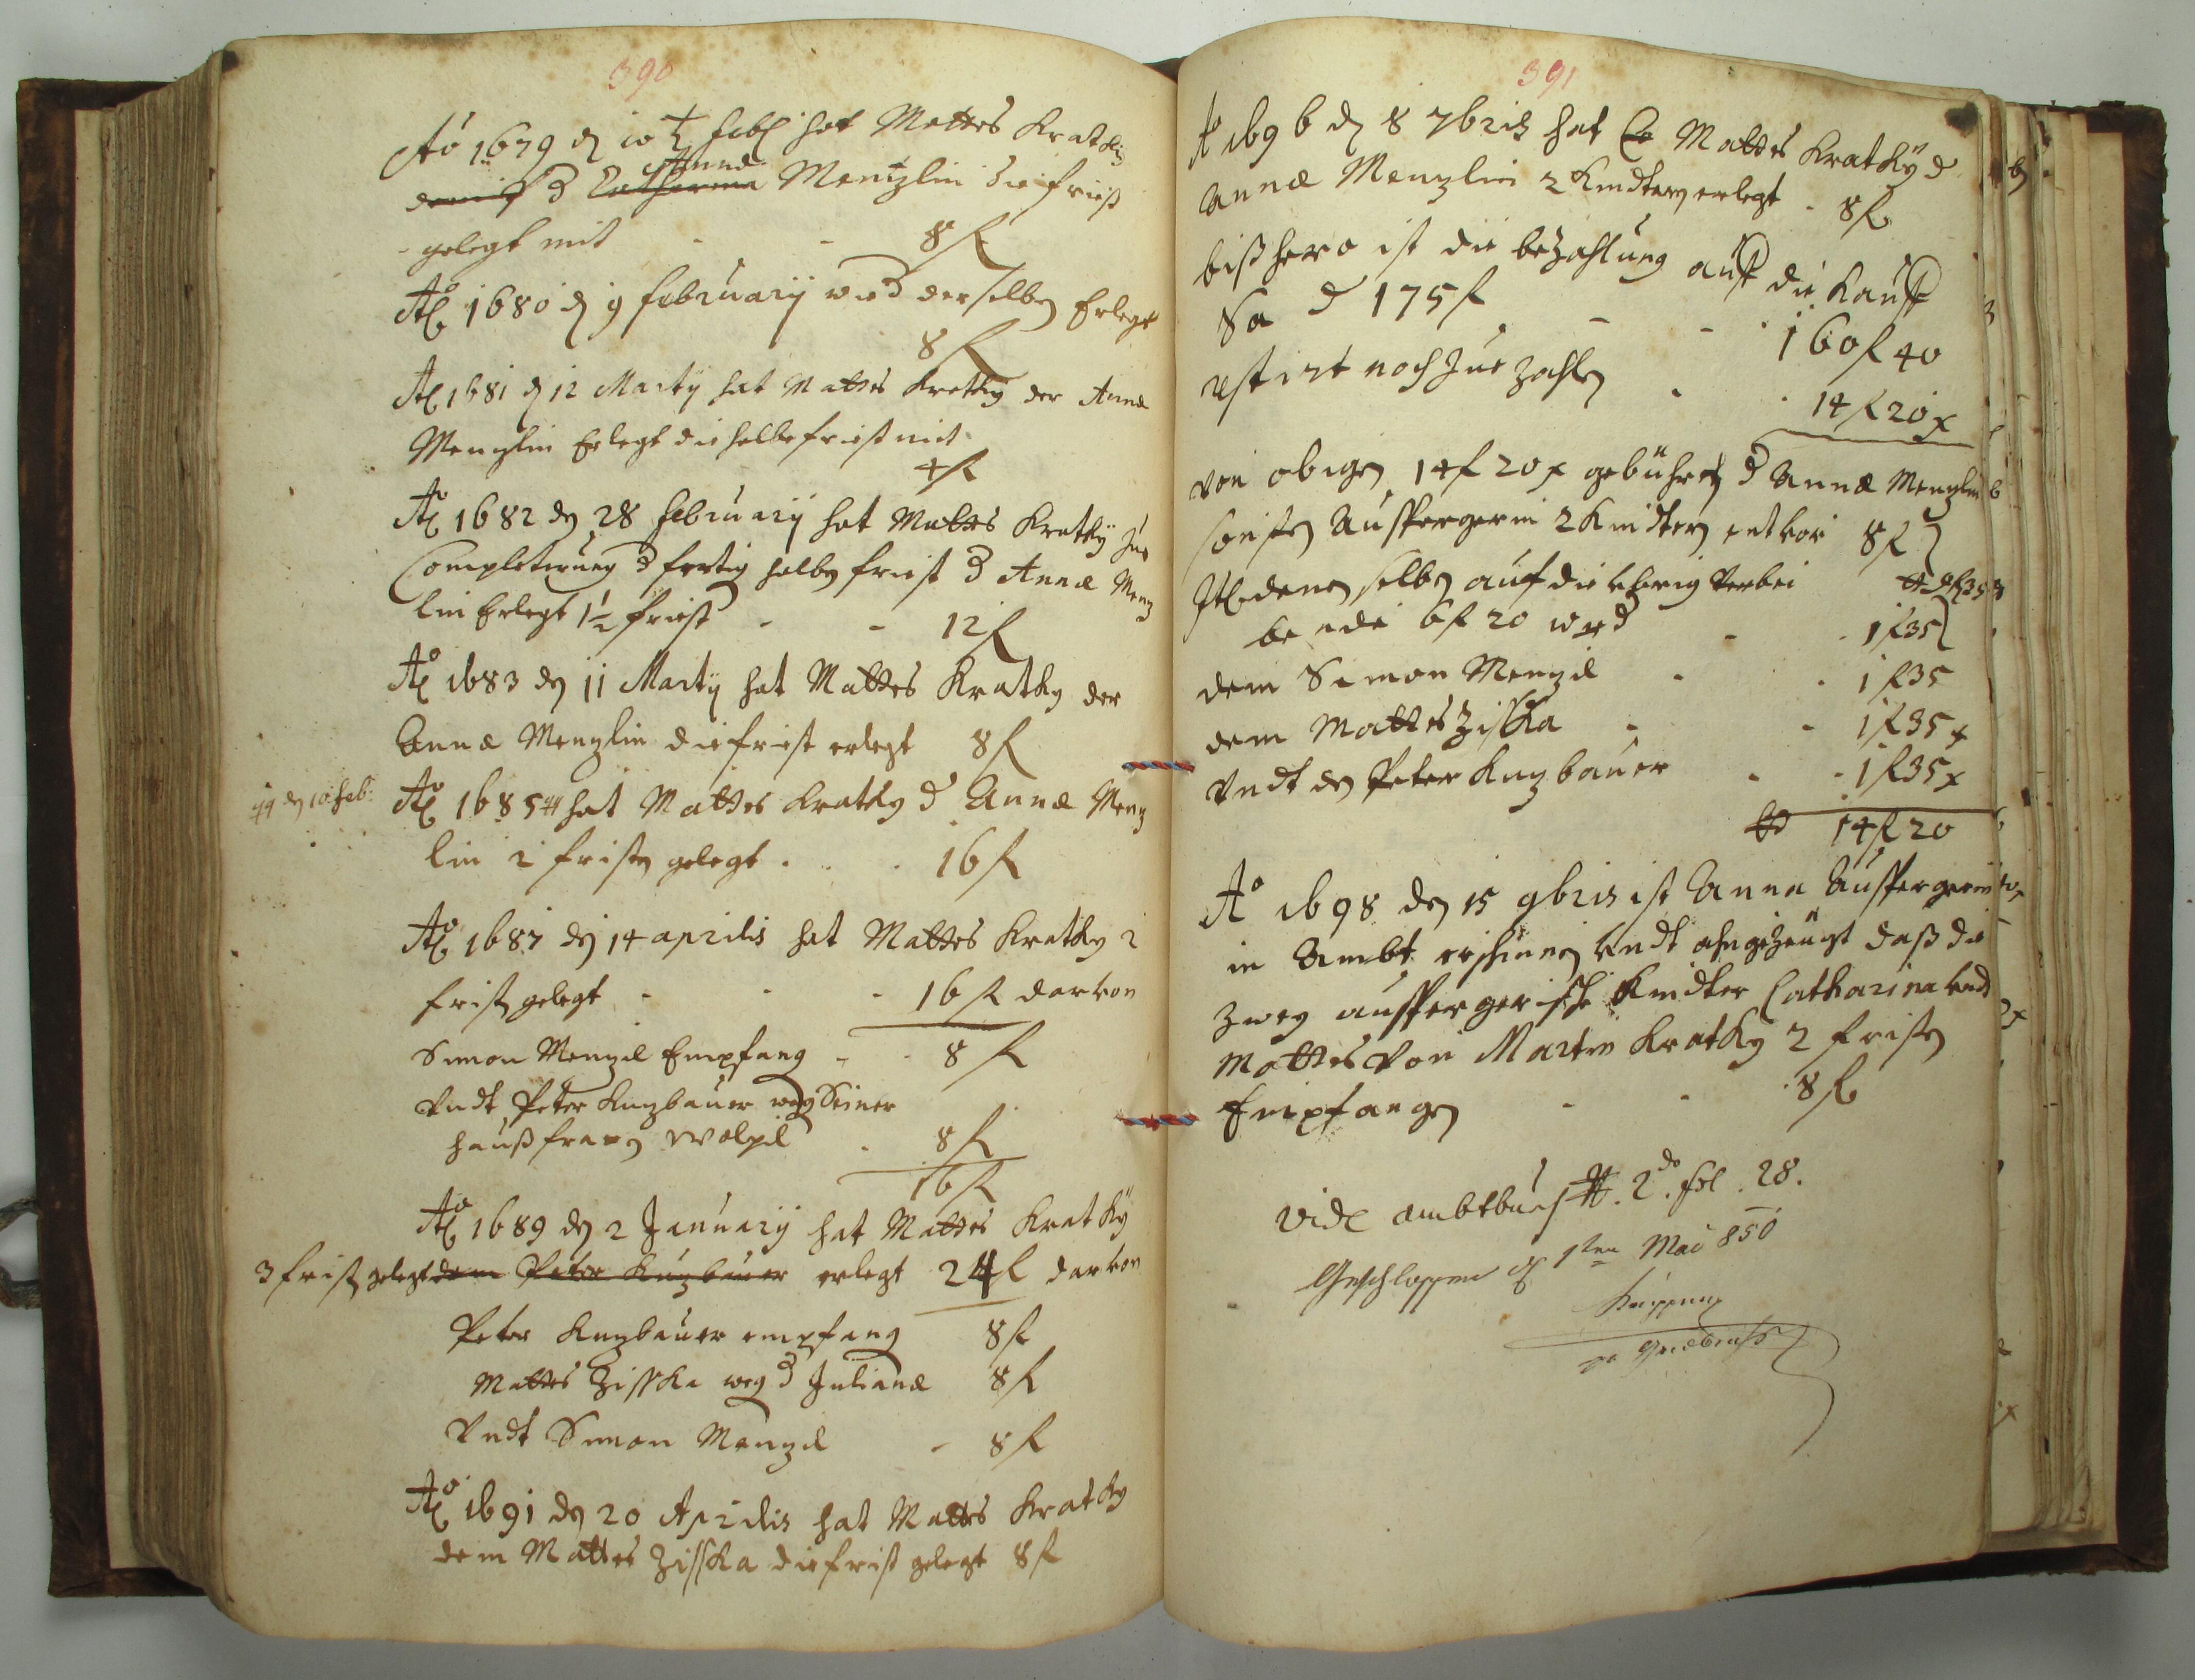 390
Aõ 1679 dẽ 10 Febr hat Mattes Kratky
Anna
Catharina Menzlin die friest
gelegt mit - - 8 f
Ao 1680 dẽ 9 february wid derselben Erlegt
8 f
Ao 1681 dẽ 12 Marty hat Mattes Kratky der Anna
Menzlin Erlegt die halbe friest mit
4 f
Ao 1682 den 28 february hat Mattes Kratky zue
Completirung d halben friest d Annæ Menz
lin Erlegt 1½ friest - - 12 f
Ao 1683 den 11 Marty hat Mattes Kratky der
Annæ Menzlin die friest erlegt 8 f
den 10 Feb:
Ao 1685 hat Mattes Kratky d Annæ Menz
lin 2 fristen gelegt . . 16 f
Ao 1687 den 14 aprilis hat Mattes Kratky 2
fristen gelegt - - - 16 f darvon
Simon Menzil Empfang - - 8 f
Vndt Peter Kuzbauer weg Seiner
haußfrawen - 8 f
16 f
Ao 1689 den 2 January hat Mattes Kratkÿ
3 fristen gelegt dem Peter Kuzbauer erlegt 24 f darvon
Peter Kuzbauer empfang 8 f
Mattes Zisska weg d Julianæ 8 f
Vndt Simon Menzil - 8 f
Ao 1691 den 20 Aprilis hat Mattes Kratky
dem Mattes Zisska die frist gelegt 8 f
391
Ao 1696 den 8 7bris hat Mattes Kratkÿ d
Annæ Menzlin 2 Kindtern erlegt - 8 f
bißhero ist die bezahlung auff die Kauff
Sa d 175 f - - . 160 f 40
restirt noch zue zahlen . . 14 f 20 x
von obigen 14 f 20 x gebühret d Annæ Menzlin
sonsten Auspergerin 2 Kindtern 8 f
denen selben auf die
6 f 20 - . 1 f 35
dem Simon Menzil - . 1 f 35
dem Mattes Zisska - - 1 f 35 x
Vndt den Peter Kuzbauer - - 1 f 35 x
14 f 20
Ao 1698 den 15 9bris ist Anna Auspergerin
in Ambt erschinen vndt ahngezeugt daß die
zwey auspergerische Kindter Catharina vndt
Mattes Von Martin Kratky 2 fristen
Empfangen - - 8 f
Vide Ambtbuch 2do fol. 28.
Geschlossen 1ten Mai 850